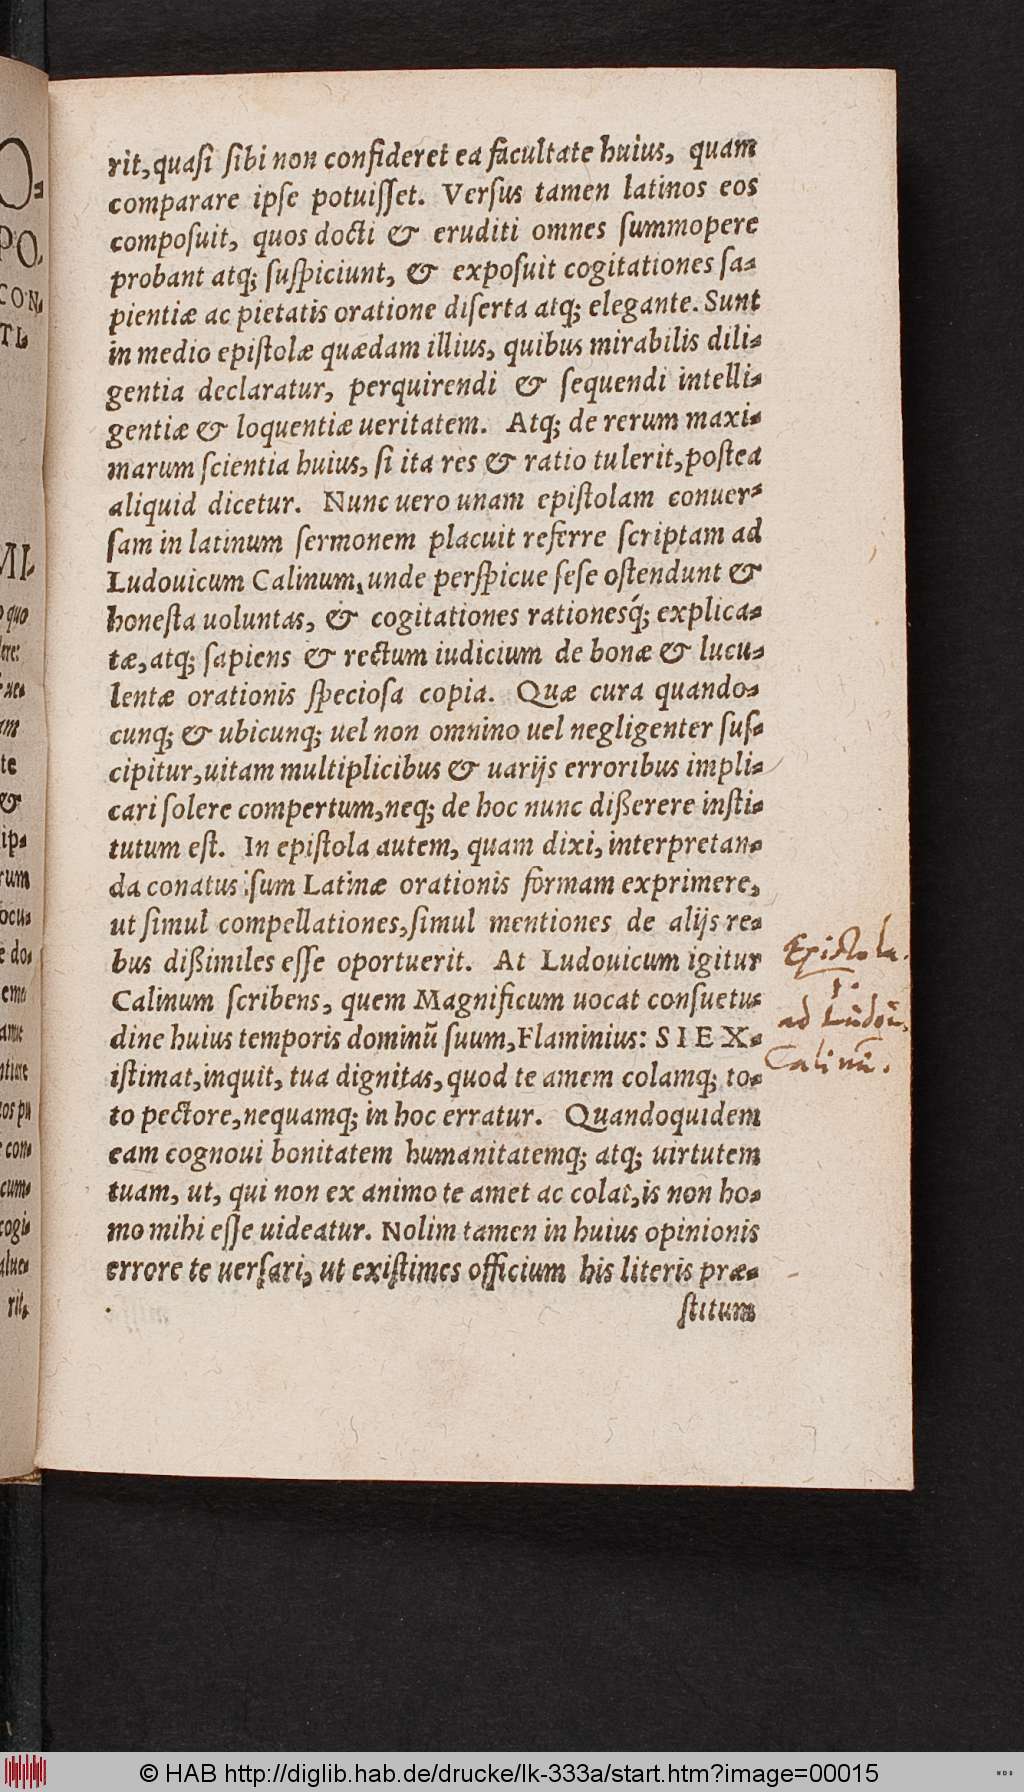 rit, quasi sibi non confideret ea facultate huius, quam
comparare ipse potuisset. Versus tamen latinos eos
composuit, quos docti & eruditi omnes summopere
probant atq; suspiciunt, & exposuit cogitationes sa-
pientiæ ac pietatis oratione diserta atq; elegante. Sunt
in medio epistolæ quædam illius, quibus mirabilis dili-
gentia declaratur, perquirendi & sequendi intelli-
gentiæ & loquentiæ ueritatem. Atq; de rerum maxi-
marum scientia huius, si ita res & ratio tulerit, postea
aliquid dicetur. Nunc uero unam epistolam conuer-
sam in latinum sermonem placuit referre scriptam ad
Ludouicum Calinum, unde perspicue sese ostendunt &
honesta uoluntas, & cogitationes rationesq́; explica-
tæ, atq; sapiens & rectum iudicium de bonæ & lucu-
lentæ orationis speciosa copia. Quæ cura quando-
cunq; & ubicunq; uel non omnino uel negligenter sus-
cipitur, uitam multiplicibus & uarijs erroribus impli-
cari solere compertum, neq; de hoc nunc dißerere insti-
tutum est. In epistola autem, quam dixi, interpretan-
da conatus sum Latinæ orationis formam exprimere,
ut simul compellationes, simul mentiones de alijs re-
bus dißimiles esse oportuerit. At Ludouicum igitur
Calinum scribens, quem Magnificum uocat consuetu-
dine huius temporis dominũ suum, Flaminius: SI EX-
istimat, inquit, tua dignitas, quod te amem colamq; to-
to pectore, nequamq; in hoc erratur. Quandoquidem
eam cognoui bonitatem humanitatemq; atq; uirtutem
tuam, ut, qui non ex animo te amet ac colat, is non ho-
mo mihi esse uideatur. Nolim tamen in huius opinionis
errore te uersari, ut existimes officium his literis præ-
stitum
Epistola.
1.
ad Ludou.
Calinũ.
© HAB http://diglib.hab.de/drucke/lk-333a/start.htm?image=00015